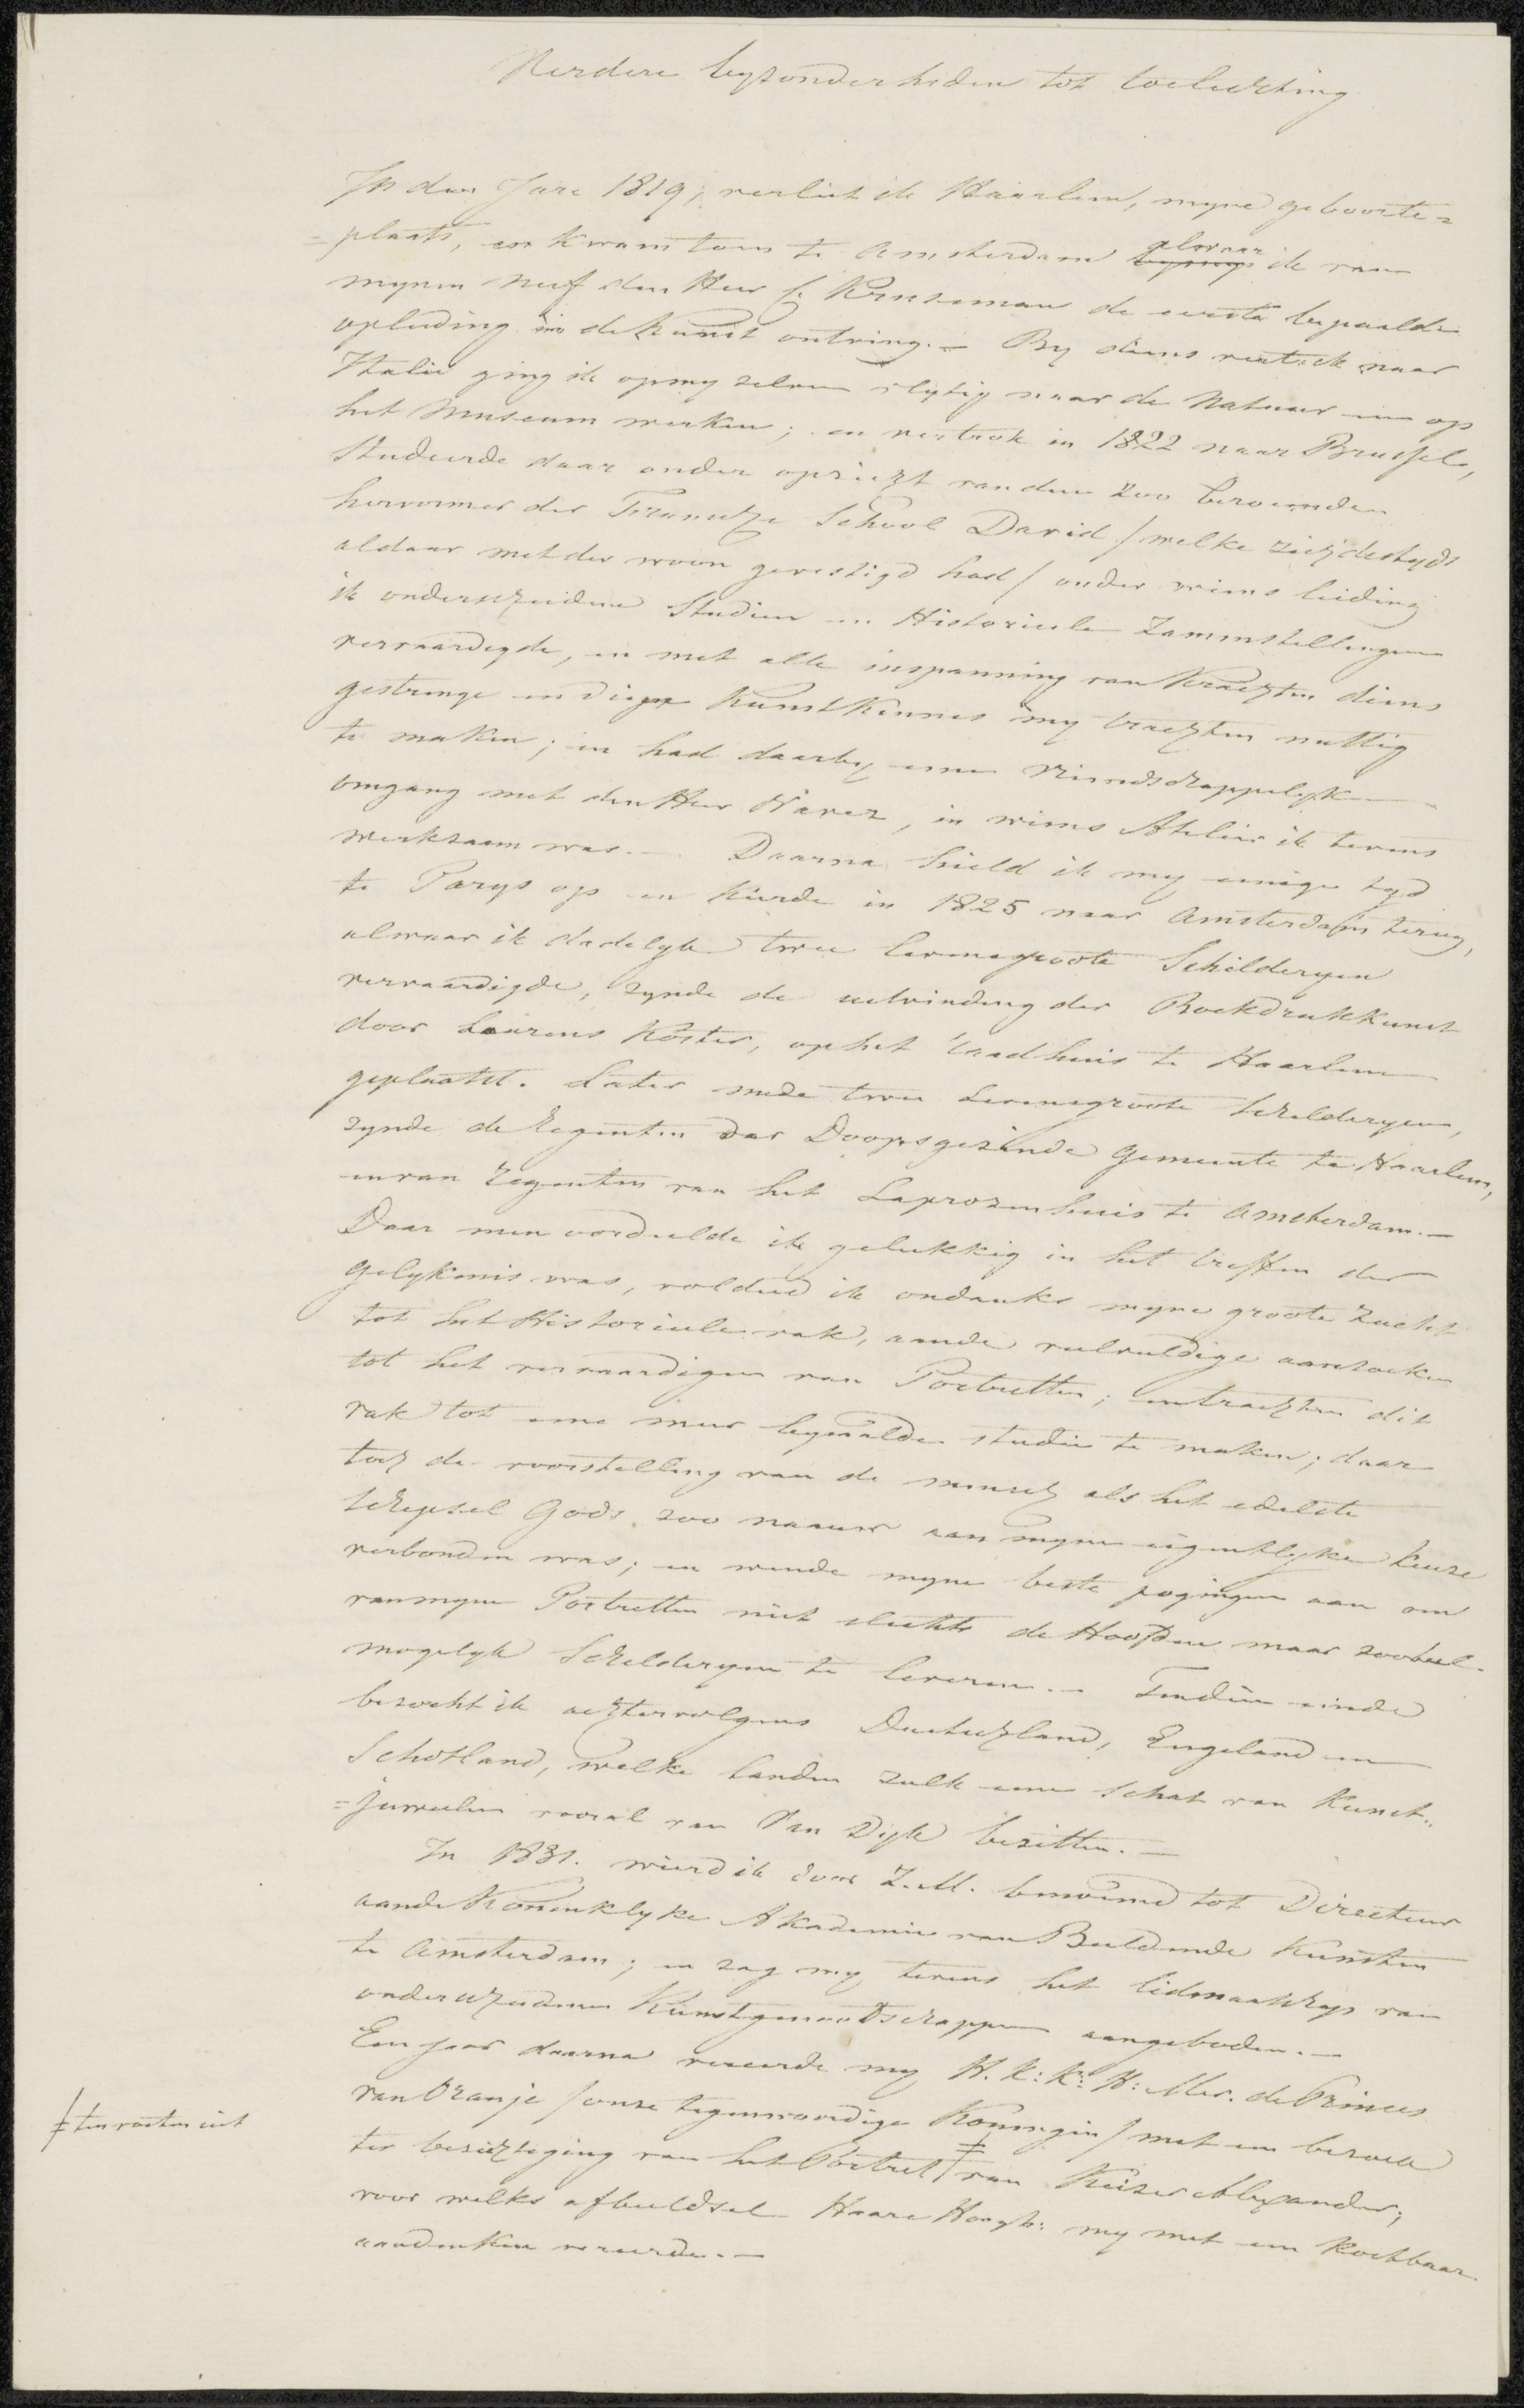 Verdere byzonderheden tot toelichting
In den Jare 1819, verliet ik Haarlem, myne geboorte=
=plaats, en kwam toen te Amsterdam alwaar ik van
mynen Neef den Heer C. Kruseman de eerste bepaalde
opleiding in de Kunst ontving. – By diens vertrek naar
Italie ging ik op my zelven vlytig naar de Natuur en op
het Museum werken; en vertrok in 1822 naar Brussel,
Studeerde daar onder opzicht van den zoo beroemden
hervormer der Fransche School David / welke zich destyds
aldaar metder woon gevestigd had / onder wiens leiding
ik onderscheidene Studien en Historiele Zamenstellingen
vervaardigde, en met alle inspanning van Krachten diens
gestrenge en diepe Kunstkennis my trachten nuttig
te maken; en had daarby eene Vriendschappelyke
omgang met den Heer Navez, in wiens Atelier ik tevens
werkzaam was. – Daarna hield ik my eenige tyd
te Parys op en Keerde in 1825 naar Amsterdam terug,
alwaar ik dadelyk twee levensgroote Schilderyen
vervaardigde, zynde de uitvinding der Boekdrukkunst
door Laurens Koster, op het raadhuis te Haarlem
geplaatst. Later mede twee Levensgroote Schilderyen,
zynde de Regenten der Doopsgezinde Gemeente te Haarlem,
en van Regenten van het Leprozenhuis te Amsterdam. –
Daar men oordeelde ik gelukkig in het treffen der
gelykenis was, voldeed ik ondanks myne groote zucht
tot het Historiele vak, aan de veelvuldige aanzoeken
tot het vervaardigen van Portretten; en trachten dit
vak tot eene meer bepaalde studie te maken; daar
toch de voorstelling van de mensch als het edelste
schepsel Gods zoo naauw aan myne eigentlyke keuze
verbonden was; en wende myne beste pogingen aan om
van myne Portretten niet slechts de Hoofden maar zooveel
mogelyk Schilderyen te leveren. – Tendien einde
bezocht ik achtervolgens Duitschland, Engeland en
Schotland, welke landen zulk eene schat van Kunst=
=juweelen vooral van Van Dyk bezitten. –
In 1831. wierd ik door Z. M. benoemd tot Directeur
aan de Koninklyke Akademie van Beeldende Kunsten
te Amsterdam; en zag my tevens het lidmaatschap van
onderscheidene Kunstgenootschappen aangeboden. –
Een jaar daarna vereerde my H. K: K: H: Mev. de Princes
van Oranje / onze tegenwoordige Koningin / met een bezoek
ter bezichtiging van het Portret ǂ van Keizer Alexander,
voor welks afbeeldsel Haare Hoogh: my met een Kostbaar
aandenken vereerde. –
ǂ ten voeten uit